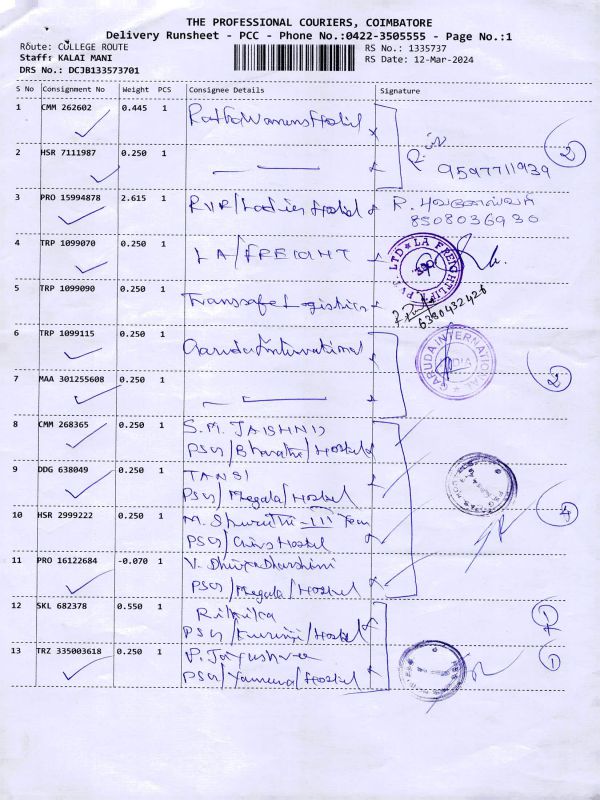 THE PROFESSIONAL COURIERS, COIMBATORE
Delivery Runsheet - PCC - Phone No.:0422-3505555 - Page No.:1
Route: COLLEGE ROUTE
RS No.: 1335737
Staff: KALAI MANI
RS Date: 12-Mar-2024
DRS No.: DCJB133573701
S No Consignment No Weight PCS Consignee Details Signature
1 CMM 262602 0.445 1
2 HSR 7111987 0.250 1
9597711939
2
3 PRO 15994878 2.615 1 RVR/Ladies Hostel R.
8508036930
4 TRP 1099070 0.250 1 LA/FREIGHT
LA FREIGHT
PVT LTD
5 TRP 1099090 0.250 1 Transsafe Logistics
6380432426
6 TRP 1099115 0.250 1 Garuda International
GARUDA INTERNATIONAL
2
7 MAA 301255608 0.250 1
8 CMM 268365 0.250 1 S.M.
PSG/Bharathi/Hostel
9 DDG 638049 0.250 1 TANSI
PSG/Megala/Hostel
4
10 HSR 2999222 0.250 1 M. Shruthi - III Year
PSG/ Hostel
11 PRO 16122684 -0.070 1 V. Dhivyadharshini
PSG/Megala/Hostel
12 SKL 682378 0.550 1 Rithika
PSG/Kurinji/Hostel
1
13 TRZ 335003618 0.250 1 P. Jayushree
PSG/Yamuna/Hostel
1